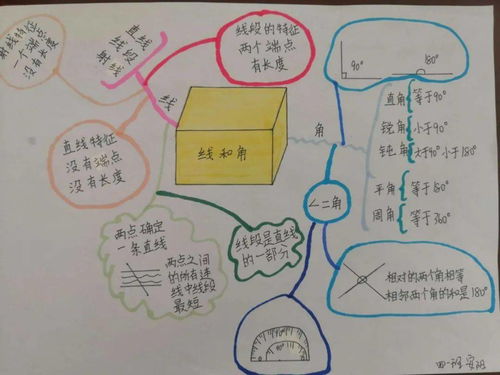 射线特征
一个端点
没有长度
直线
线段
射线
线段的特征
两个端点
有长度
线
直线特征
没有端点
没有长度
线和角
角
90°
180°
直角 等于90°
锐角 小于90°
钝角 大于90° 小于180°
平角 等于180°
周角 等于360°
两点确定
一条直线
两点之间
的所有连
线中线段
最短
线段是直线
的一部分
∠二角
相对的两个角相等
相邻两个角的和是180°
0
四一班